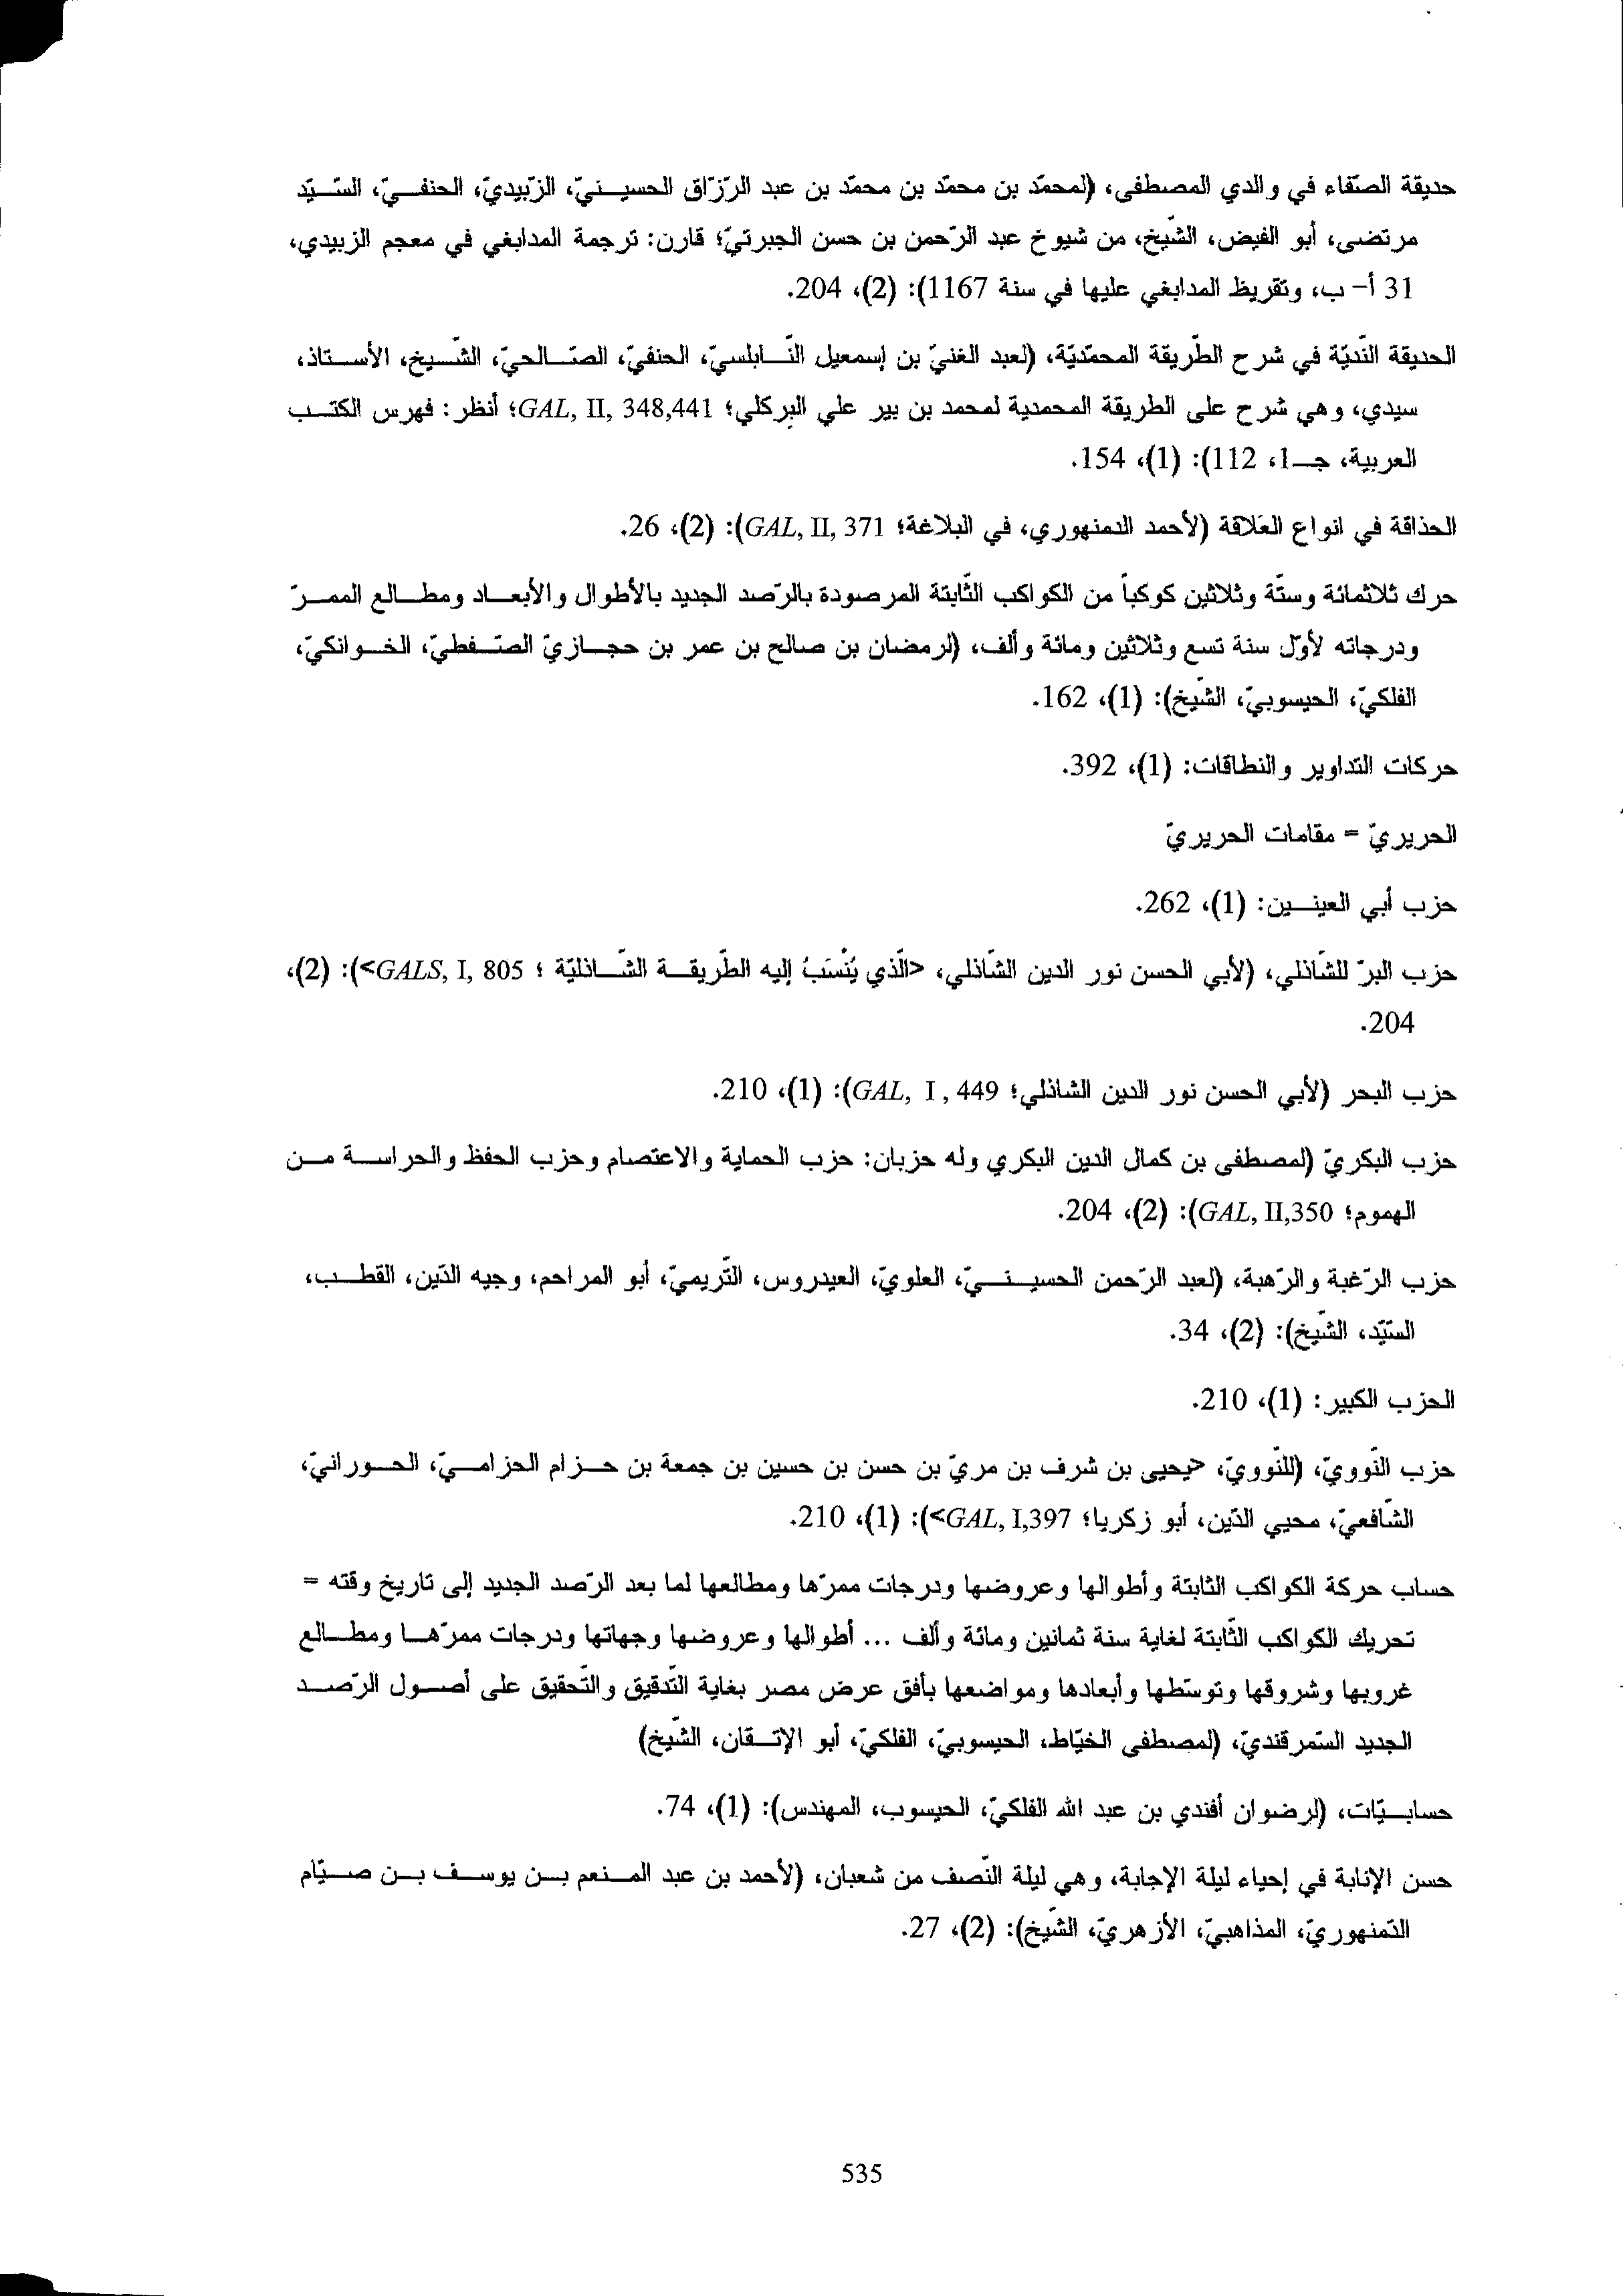 حديقة الصّفاء في والدي المصطفى، (لمحمّد بن محمّد بن محمّد بن عبد الرّزّاق الحسينيّ، الزّبيديّ، الحنفيّ، السّيّد
مرتضى، أبو الفيض، الشّيخ، من شيوخ عبد الرّحمن بن حسن الجبرتيّ؛ قارن: ترجمة المدابغي في معجم الزبيدي،
31 أ- ب، وتقريظ المدابغي عليها في سنة 1167): (2)، 204.
الحديقة النّديّة في شرح الطّريقة المحمّديّة، (لعبد الغنيّ بن إسمعيل النّابلسيّ، الحنفيّ، الصّالحيّ، الشّيخ، الأستاذ،
سيدي، وهي شرح على الطريقة المحمدية لمحمد بن بير علي البركلي؛ GAL, II, 348,441؛ أنظر: فهرس الكتب
العربية، جـ1، 112): (1)، 154.
الحذاقة في انواع العَلاقة (لأحمد الدمنهوري، في البلاغة؛ GAL, II, 371): (2)، 26.
حرك ثلاثمائة وستّة وثلاثين كوكباً من الكواكب الثّابتة المرصودة بالرّصد الجديد بالأطوال والأبعاد ومطالع الممرّ
ودرجاته لأوّل سنة تسع وثلاثين ومائة وألف، (لرمضان بن صالح بن عمر بن حجازيّ الصّفطيّ، الخوانكيّ،
الفلكيّ، الحيسوبيّ، الشّيخ): (1)، 162.
حركات التداوير والنطاقات: (1)، 392.
الحريريّ = مقامات الحريريّ
حزب أبي العينين: (1)، 262.
حزب البرّ للشّاذلي، (لأبي الحسن نور الدين الشّاذلي، <الّذي يُنْسَبُ إليه الطّريقة الشّاذليّة ؛ GALS, I, 805>): (2)،
204.
حزب البحر (لأبي الحسن نور الدين الشاذلي؛ GAL, I , 449): (1)، 210.
حزب البكريّ (لمصطفى بن كمال الدين البكري وله حزبان: حزب الحماية والاعتصام وحزب الحفظ والحراسة من
الهموم؛ GAL, II,350): (2)، 204.
حزب الرّغبة والرّهبة، (لعبد الرّحمن الحسينيّ، العلويّ، العيدروس، التّريميّ، أبو المراحم، وجيه الدّين، القطب،
السّيّد، الشّيخ): (2)، 34.
الحزب الكبير: (1)، 210.
حزب النّوويّ، (للنّوويّ، <يحيى بن شرف بن مريّ بن حسن بن حسين بن جمعة بن حزام الحزاميّ، الحورانيّ،
الشّافعيّ، محيي الدّين، أبو زكريا؛ GAL, I,397>): (1)، 210.
حساب حركة الكواكب الثابتة وأطوالها وعروضها ودرجات ممرّها ومطالعها لما بعد الرّصد الجديد إلى تاريخ وقته =
تحريك الكواكب الثّابتة لغاية سنة ثمانين ومائة وألف ... أطوالها وعروضها وجهاتها ودرجات ممرّها ومطالع
غروبها وشروقها وتوسّطها وأبعادها ومواضعها بأفق عرض مصر بغاية التّدقيق والتّحقيق على أصول الرّصد
الجديد السّمرقنديّ، (لمصطفى الخيّاط، الحيسوبيّ، الفلكيّ، أبو الإتقان، الشّيخ)
حسابيّات، (لرضوان أفندي بن عبد الله الفلكيّ، الحيسوب، المهندس): (1)، 74.
حسن الإنابة في إحياء ليلة الإجابة، وهي ليلة النّصف من شعبان، (لأحمد بن عبد المنعم بن يوسف بن صيّام
الدّمنهوريّ، المذاهبيّ، الأزهريّ، الشّيخ): (2)، 27.
535